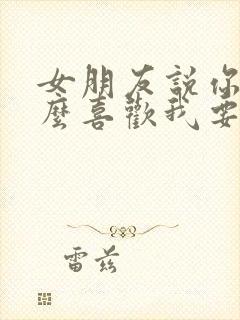 女朋友說你
麼喜歡我要
雷茲